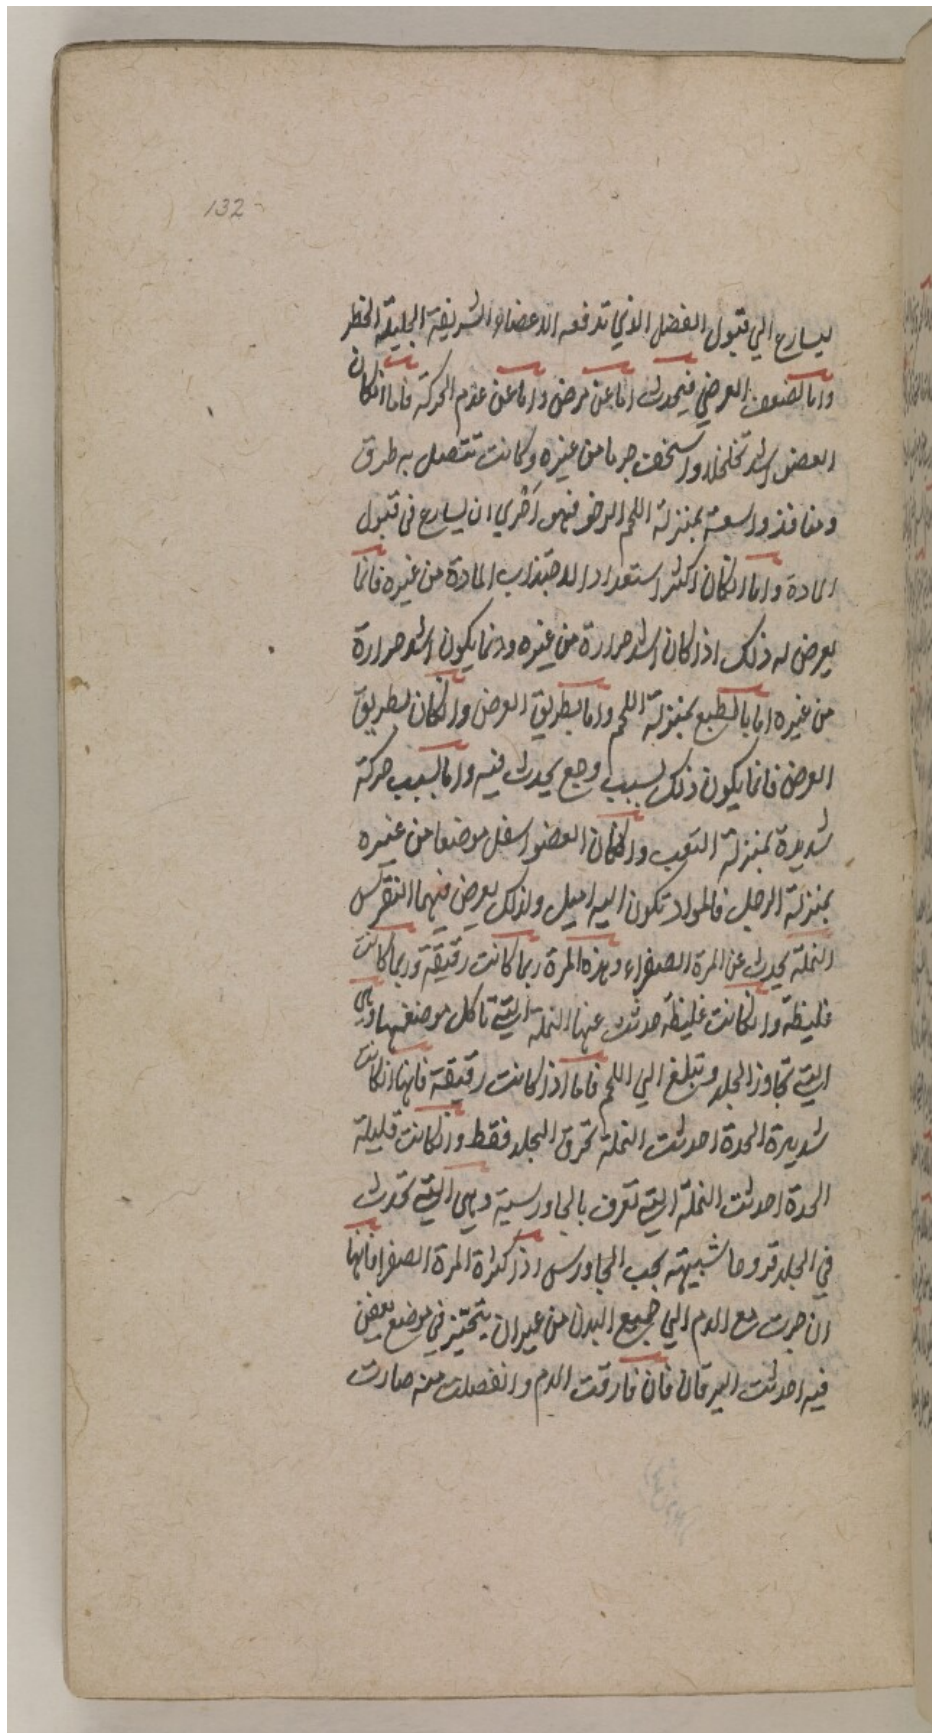 132
ليسارع الي قبول الفضل الذي تدفعه الاعضاء الشريفة الجليلة الخطر
واما الضعف العرضي فيحدث اما عن مرض واما عن عدم الحركة فاما انكان
العضو اشد تخلخلا واسخف جرما من غيره وكانت تتصل به طرق
ومنافذ واسعة بمنزلة اللحم الرخو فهو احري ان يسارع في قبول
المادة واما انكان اكثر استعدادا لاجتذاب المادة من غيره فانما
يعرض له ذلك اذا كان اشد حرارة من غيره وانما يكون اشد حرارة
من غيره اما بالطبع بمنزلة اللحم واما بطريق العرض وانكان بطريق
العرض فانما يكون ذلك بسبب وجع يحدث فيه واما بسبب حركة
شديدة بمنزلة التعب وانكان العضو اسفل موضعا من غيره
بمنزلة الرجل فالمواد تكون اليه اميل ولذلك يعرض فيهما النقرس
النملة يحدث عن المرة الصفراء وهذه المرة ربما كانت رقيقة وربما كانت
غليظة وانكانت غليظة حدثت عنها النملة التي تاكل موضعها وهي
التي تجاوز الجلد وتبلغ الي اللحم فاما اذا كانت رقيقة فانها انكانت
شديدة الحدة احدثت النملة تحرق الجلد فقط وانكانت قليلة
الحدة احدثت النملة التي تعرف بالجاورسية وهي التي تحدث
في الجلد قروحا شبيهة بحب الجاورس اذا كثرة المرة الصفرا فانها
ان جرت مع الدم الي جميع البدن من غير ان يتحيز في موضع يعفن
فيه احدثت اليرقان فان فارقت الدم وانفصلت منه صارت